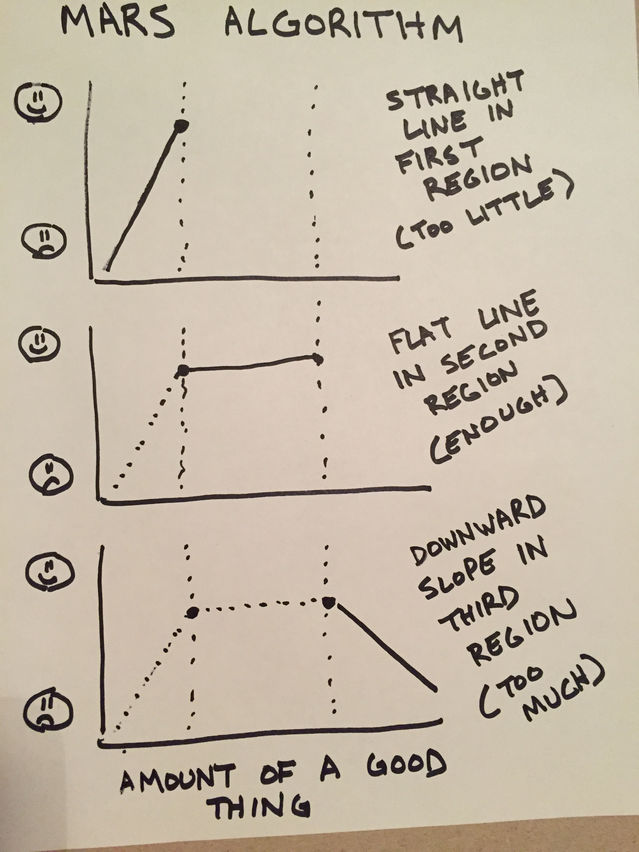 MARS ALGORITHM
STRAIGHT
LINE IN
FIRST
REGION
(TOO LITTLE)
FLAT LINE
IN SECOND
REGION
(ENOUGH)
DOWNWARD
SLOPE IN
THIRD
REGION
(TOO
MUCH)
AMOUNT OF A GOOD
THING